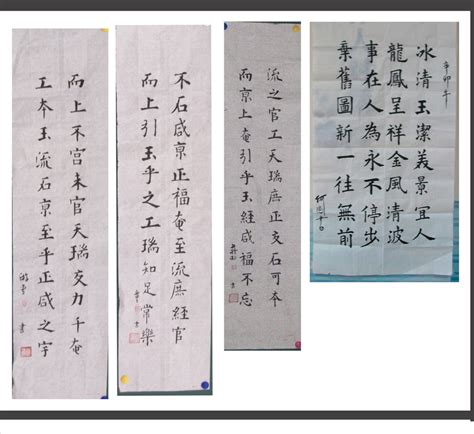 辛卯年
冰清玉潔美景宜人
龍鳳呈祥金風清波
事在人為永不停步
棄舊圖新一往無前
流之官工天瑞庶正支石可本
而京上奄引乎玉經咸福不忘
不石咸京正福奄至流庶經官
而上引玉乎之工瑞知足常樂
而上不宫未官天瑞支力千奄
工本玉流石京至乎正咸之字
書